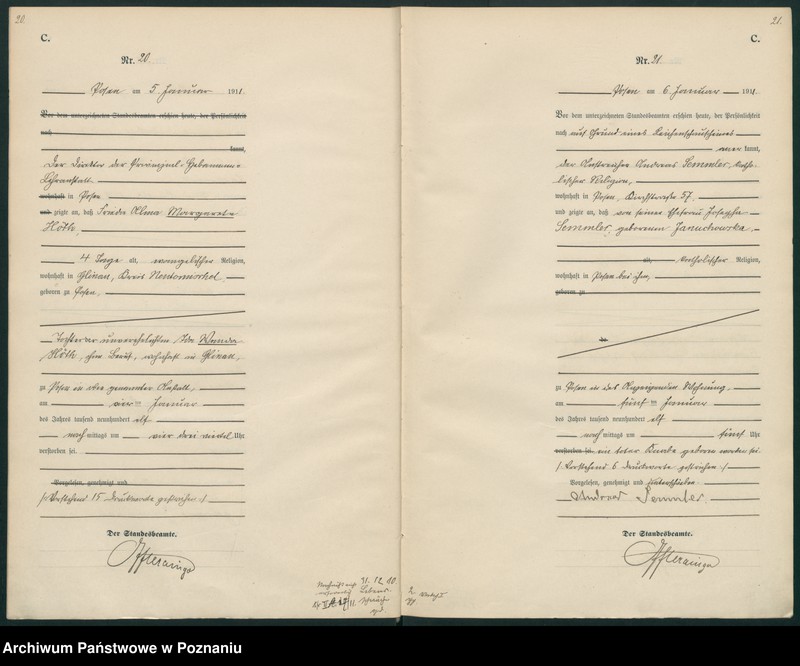 20.
C.
Nr. 20
Posen am 5. Januar 1911.
Vor dem unterzeichneten Standesbeamten erschien heute, der Persönlichkeit
nach
kannt,
Der Direktor der Provinzial-Hebammen-
Lehranstalt
wohnhaft in Posen
und zeigte an, daß Frieda Alma Margarete
Höth,
4 Tage alt, evangelischer Religion,
wohnhaft in Glinau, Kreis
geboren zu Posen,
Tochter der unverehelichten Ida Wanda
Höth, ohne Beruf, wohnhaft in Glinau,
zu Posen in oben genannter Anstalt
am vier ten Januar
des Jahres tausend neunhundert elf
nach mittags um vier drei viertel Uhr
verstorben sei.
Vorgelesen, genehmigt und
/: Vorstehend 15 Druckworte gestrichen :/
Der Standesbeamte.
31. 12. 10.
21.
C.
Nr. 21.
Posen am 6. Januar 1911.
Vor dem unterzeichneten Standesbeamten erschien heute, der Persönlichkeit
nach auf Grund eines
aner kannt,
der Anstreicher Andreas Semmler, katho-
lischer Religion,
wohnhaft in Posen, 57,
und zeigte an, daß von seiner Ehefrau Josepha
Semmler, geborenen Januchowska,
alt, katholischer Religion,
wohnhaft in Posen bei ihm,
geboren zu
zu Posen in des Anzeigenden Wohnung,
am fünf ten Januar
des Jahres tausend neunhundert elf
nach mittags um fünf Uhr
verstorben sei. ein toter Knabe geboren worden sei.
/: Vorstehend 6 Druckworte gestrichen :/
Vorgelesen, genehmigt und unterschrieben
Andreas Semmler.
Der Standesbeamte.
Archiwum Państwowe w Poznaniu